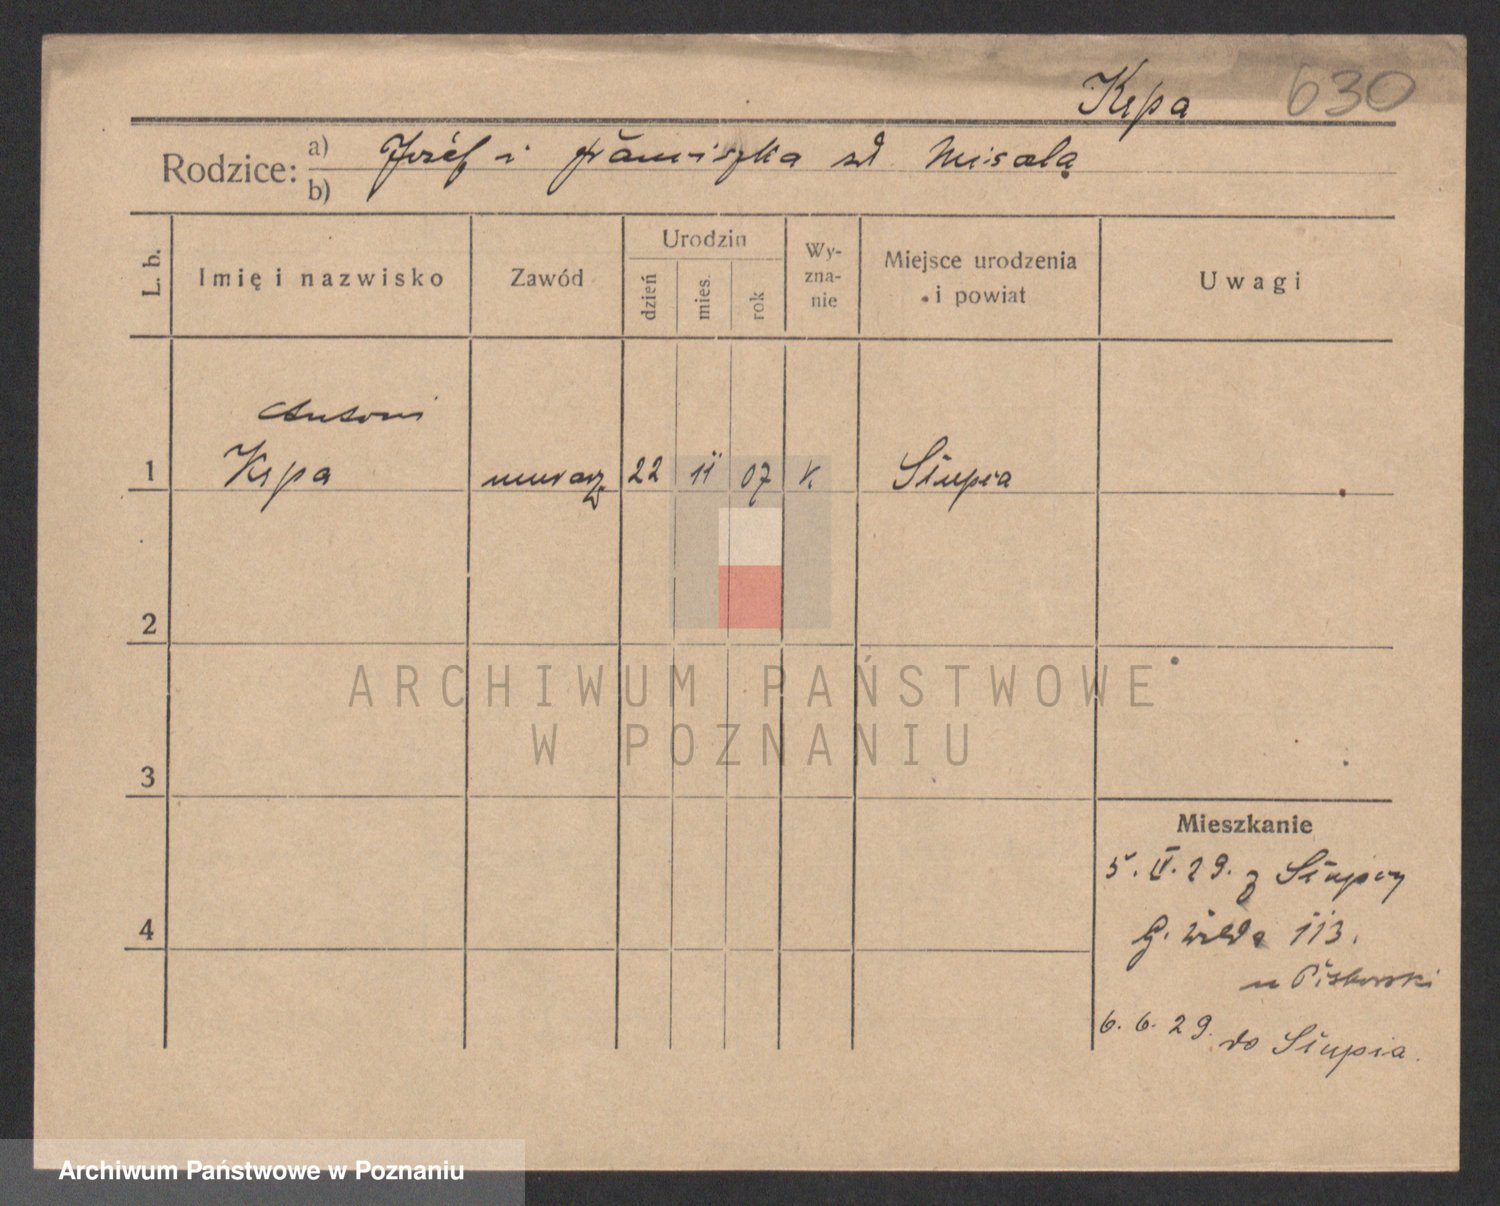 Kępa 630
Rodzice: a) Józef i Franciszka zd Misala
b)
L. b. Imię i nazwisko Zawód Urodzin dzień mies. rok Wy-zna-nie Miejsce urodzenia i powiat Uwagi
Antoni
1 Kępa murarz 22 11 07 k. Słupia
2
3
4
Mieszkanie
5. II. 29. z Słupcy
G. Wilda 113.
u
6. 6. 29. do Słupia.
ARCHIWUM PAŃSTWOWE
W POZNANIU
Archiwum Państwowe w Poznaniu